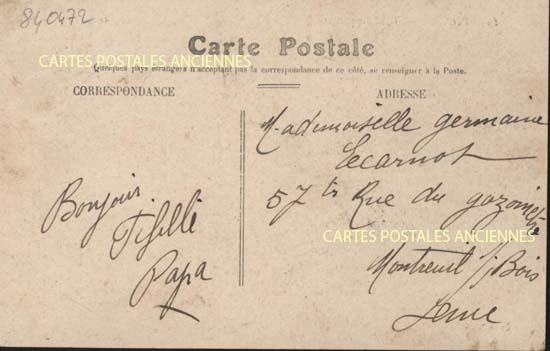 840472
CARTES POSTALES ANCIENNES
Carte Postale
Quelques pays étrangers n'acceptant pas la correspondance de ce côté, se renseigner à la Poste.
CORRESPONDANCE
ADRESSE
Bonjour
Fifille
Papa
Mademoiselle germaine
Lecarnot
57 Rue du gazomètre
CARTES POSTALES ANCIENNES
Montreuil s/ Bois
Seine